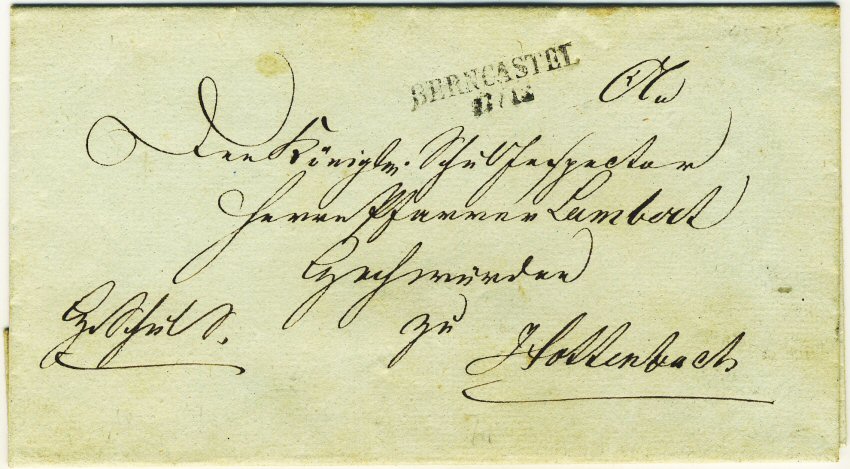 BERNCASTEL
An
Den Königln. Schul Inspector
Herrn Pfarrer Lambert
Hochwürden
zu
Hottenbach
Schul S.